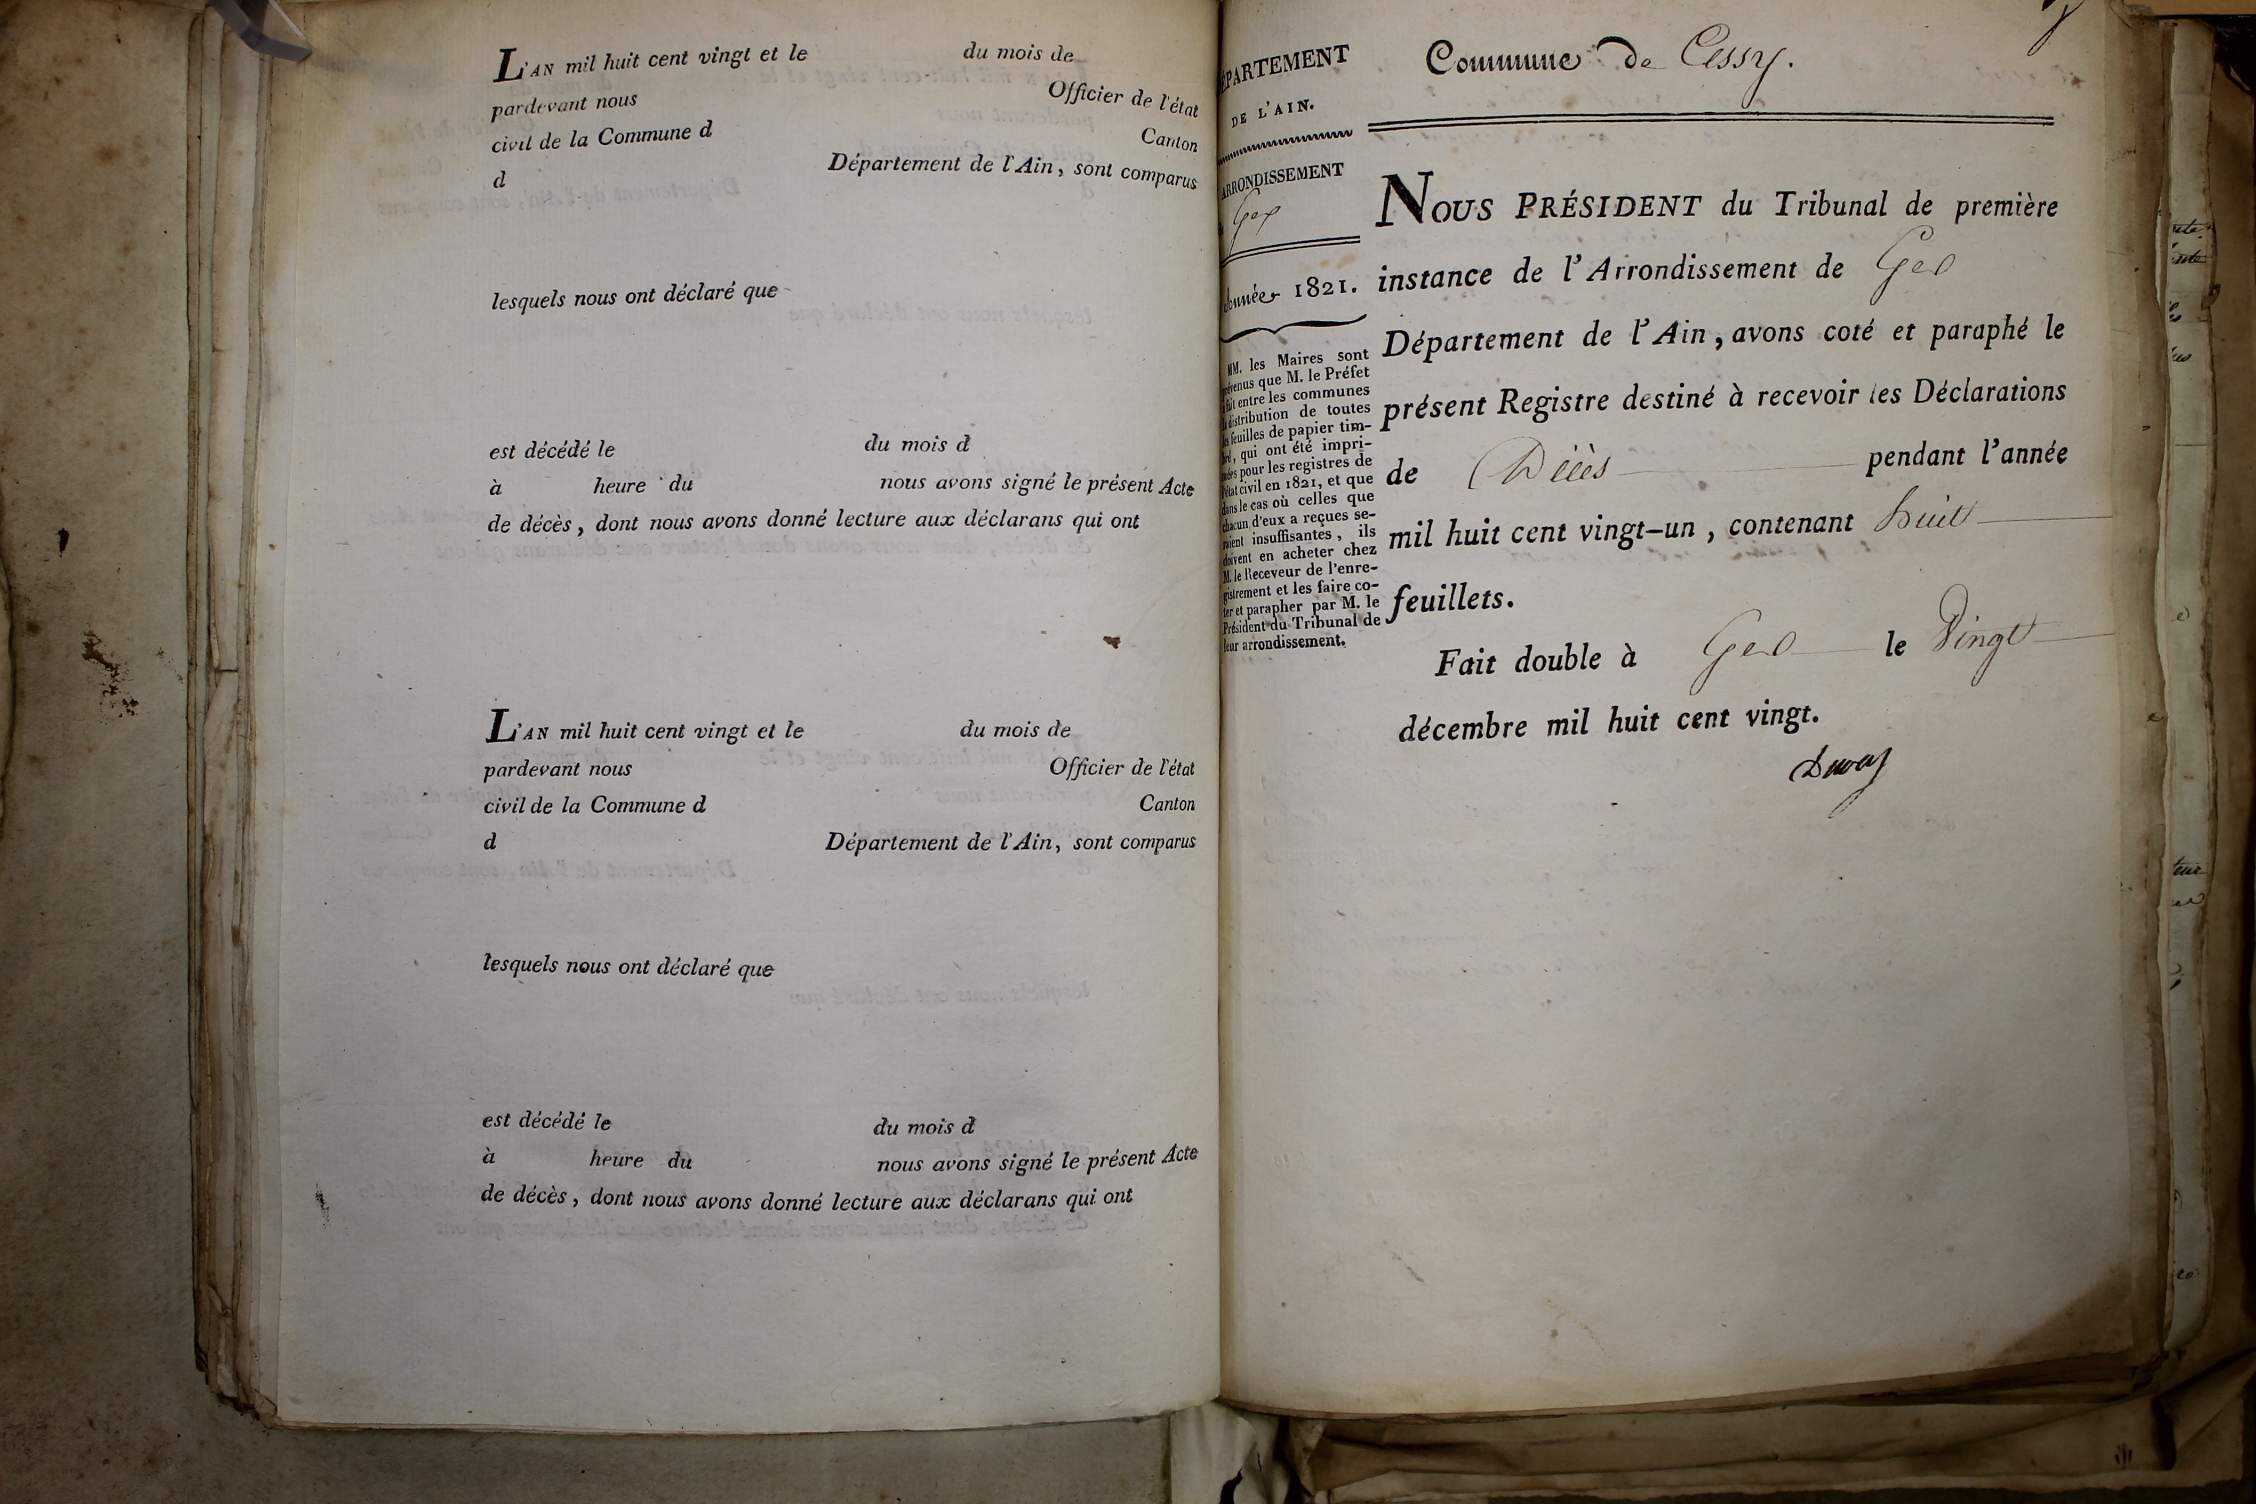 L'AN mil huit cent vingt et le du mois de
pardevant nous Officier de l'état
civil de la Commune d Canton
d Département de l'Ain, sont comparus
lesquels nous ont déclaré que
est décédé le du mois d
à heure du nous avons signé le présent Acte
de décès, dont nous avons donné lecture aux déclarans qui ont
L'AN mil huit cent vingt et le du mois de
pardevant nous Officier de l'état
civil de la Commune d Canton
d Département de l'Ain, sont comparus
lesquels nous ont déclaré que
est décédé le du mois d
à heure du nous avons signé le présent Acte
de décès, dont nous avons donné lecture aux déclarans qui ont
DÉPARTEMENT
DE L'AIN.
ARRONDISSEMENT
Gex
Année 1821.
MM. les Maires sont
prévenus que M. le Préfet
a fait entre les communes
la distribution de toutes
les feuilles de papier tim-
bré, qui ont été impri-
mées pour les registres de
l'état civil en 1821, et que
dans le cas où celles que
chacun d'eux a reçues se-
roient insuffisantes, ils
doivent en acheter chez
M. le Receveur de l'enre-
gistrement et les faire co-
ter et parapher par M. le
Président du Tribunal de
leur arrondissement.
Commune de Cessy.
NOUS PRÉSIDENT du Tribunal de première
instance de l'Arrondissement de Gex
Département de l'Ain, avons coté et paraphé le
présent Registre destiné à recevoir les Déclarations
de Décès pendant l'année
mil huit cent vingt-un, contenant huit
feuillets.
Fait double à Gex le Vingt
décembre mil huit cent vingt.